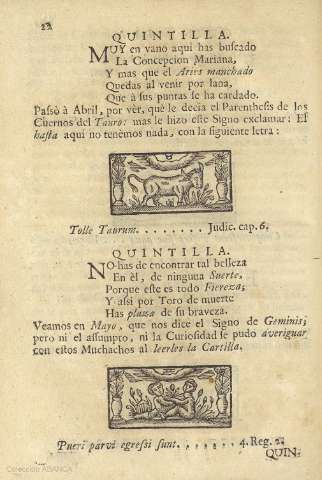 22
QUINTILLA.
MUY en vano aqui has buscado
La Concepcion Mariana,
Y mas que el Aries manchado
Quedas al venir por lana,
Que à sus puntas se ha cardado.
Passò à Abril, por vèr, què le decia el Parenthesis de los
Cuernos del Tauro: mas le hizo este Signo exclamar: Es
hasta aqui no tenèmos nada, con la siguiente letra:
Tolle Taurum. . . . . . . . Judic. cap. 6.
QUINTILLA.
NO has de encontrar tal belleza
En èl, de ninguna Suerte,
Porque este es todo Fiereza;
Y assi por Toro de muerte
Has plaza de su braveza.
Veamos en Mayo, que nos dice el Signo de Geminis;
pero ni el assumpto, ni la Curiosidad se pudo averiguar
con estos Muchachos al leerles la Cartilla.
Pueri parvi egressi sunt. . . . . . . 4. Reg. 2.
QUIN-
Colección ABANCA